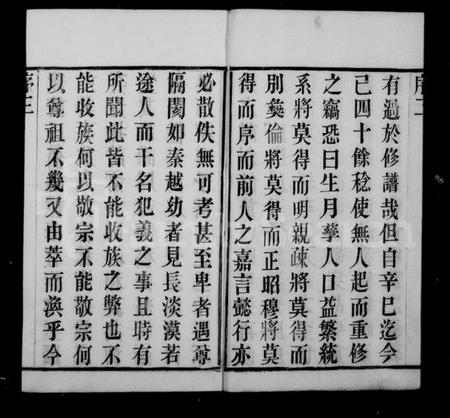 序二
有過於修譜哉但自辛巳迄今
己四十餘稔使無人起而重修
之竊恐日生月孳人口益繁統
系將莫得而明親疎將莫得而
別彜倫將莫得而正昭穆將莫
得而序而前人之嘉言懿行亦
必散佚無可考甚至卑者遇尊
隔閡如秦越幼者見長淡漠若
途人而干名犯義之事且時有
所聞此皆不能收族之弊也不
能收族何以敬宗不能敬宗何
以尊祖不幾又由萃而渙乎今
序三